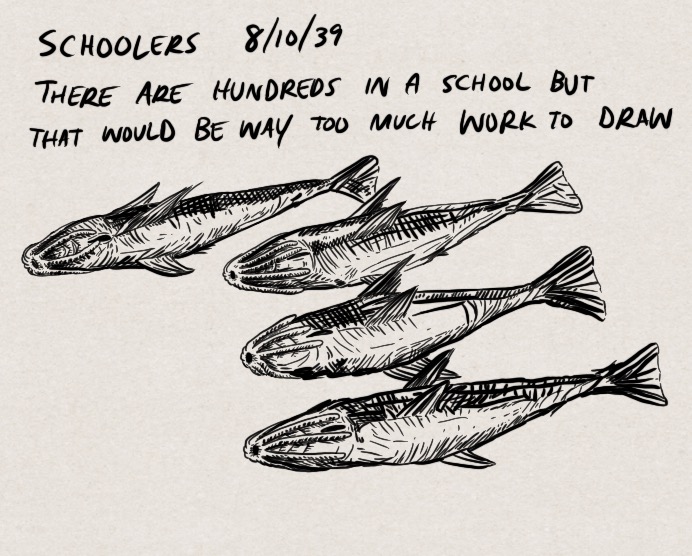 SCHOOLERS 8/10/39
THERE ARE HUNDREDS IN A SCHOOL BUT
THAT WOULD BE WAY TOO MUCH WORK TO DRAW